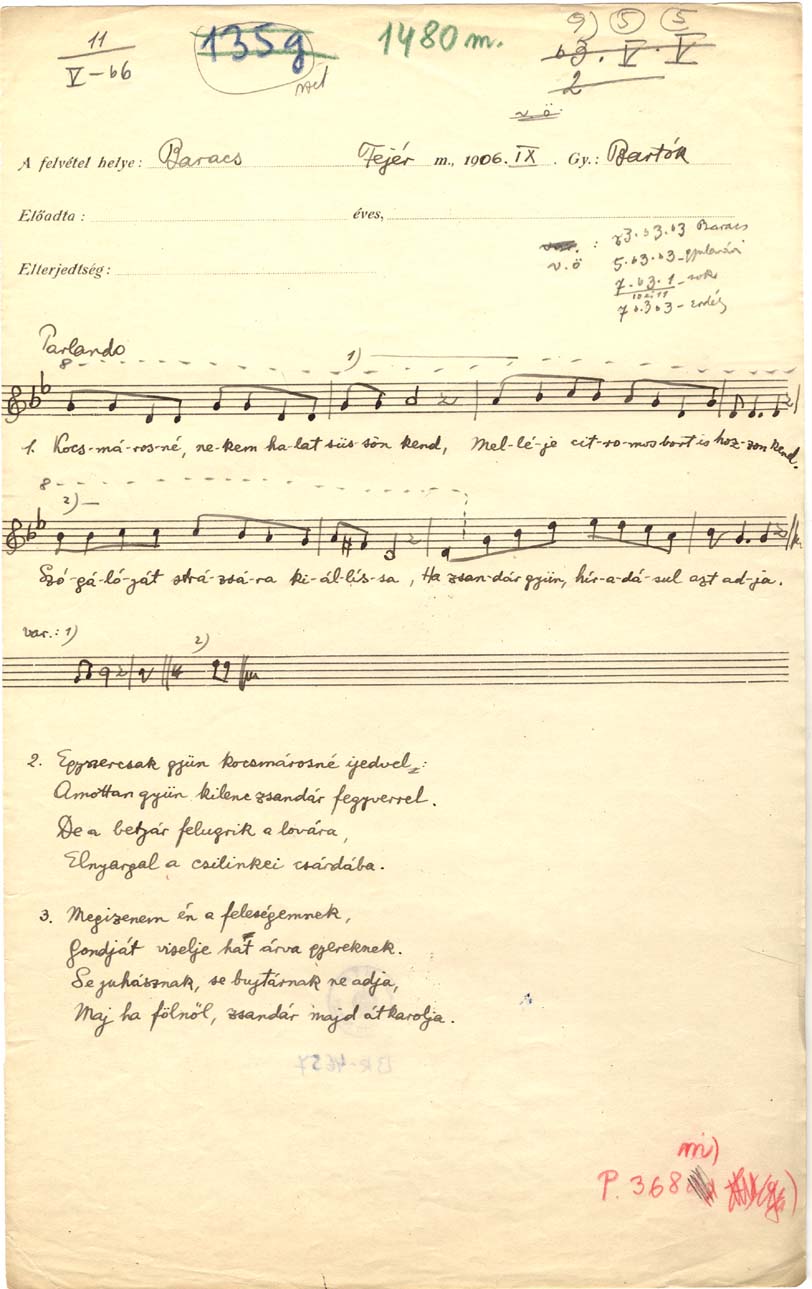 11
V-66
135g
1480 m.
9) 5 5
63. V. V
2
v.ö.
A felvétel helye: Baracs Fejér m., 1906. IX. Gy.: Bartók
Előadta: éves,
Elterjedtség:
var. : 73.b3.b3 Baracs
v.ö 5.b3.b3-gyulavári
7.b3.1-
7b.3b3-erdély
Parlando
8 1)
1. Kocs-má-ros-né, ne-kem ha-lat süs-sön kend, Mel-lé-je cit-ro-mos bort is hoz-zon kend.
8
2)
Szó-gá-ló-ját strá-zsá-ra ki-ál-lís-sa, Ha zsan-dár gyün, hír-a-dá-sul azt ad-ja.
var.: 1) 2)
2. Egyszercsak gyün kocsmárosné ijedvel:
Amottan gyün kilenc zsandár fegyverrel.
De a betyár felugrik a lovára,
Elnyargal a csilinkei csárdába.
3. Megizenem én a feleségemnek,
Gondját viselje hat árva gyereknek.
Se juhásznak, se bujtárnak ne adja,
Maj ha fölnől, zsandár majd átkarolja.
BR-4657
m)
P. 368